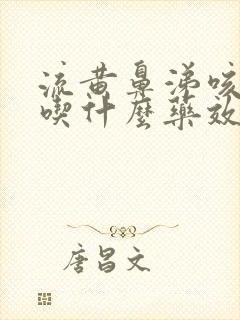 流黄鼻涕咳
喫什麼藥效
唐昌文